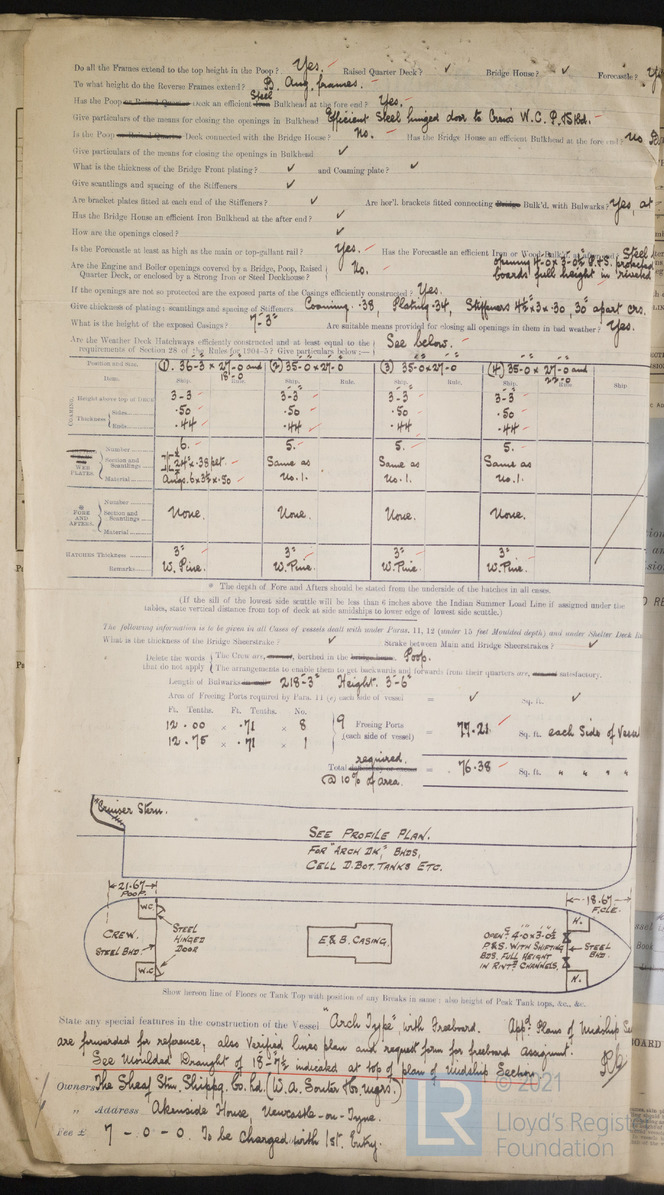 Do all the Frames extend to the top height in the Poop? Yes. Raised Quarter Deck? ✓ Bridge House? ✓ Forecastle?
To what height do the Reverse Frames extend? B. Ang. frames.
Has the Poop or Raised Quarter Deck an efficient Iron Steel Bulkhead at the fore end? Yes.
Give particulars of the means for closing the openings in Bulkhead Efficient Steel hinged door to Crew's W.C. P.&Sbd.
Is the Poop or Raised Quarter Deck connected with the Bridge House? No. Has the Bridge House an efficient Bulkhead at the fore end? No
Give particulars of the means for closing the openings in Bulkhead ✓
What is the thickness of the Bridge Front plating? ✓ and Coaming plate? ✓
Give scantlings and spacing of the Stiffeners ✓
Are bracket plates fitted at each end of the Stiffeners? ✓ Are hor'l. brackets fitted connecting Bridge Bulk'd. with Bulwarks? Yes, at
Has the Bridge House an efficient Iron Bulkhead at the after end? ✓
How are the openings closed? ✓
Is the Forecastle at least as high as the main or top-gallant rail? Yes. Has the Forecastle an efficient Iron or Wood Bulk'd. Steel
Are the Engine and Boiler openings covered by a Bridge, Poop, Raised Quarter Deck, or enclosed by a Strong Iron or Steel Deckhouse? No. boards full height in riveted
If the openings are not so protected are the exposed parts of the Casings efficiently constructed? Yes.
Give thickness of plating: scantlings and spacing of Stiffeners Coaming .38, Plating .34, Stiffeners 4½ x 3 x .30, 30" apart crs.
What is the height of the exposed Casings? 7'-3" Are suitable means provided for closing all openings in them in bad weather? Yes.
Are the Weather Deck Hatchways efficiently constructed and at least equal to the requirements of Section 28 of the Rules for 1904-5? Give particulars below:— See below.
Position and Size. (1). 36-3 x 27-0 and 18-0 (2) 35-0 x 27-0 (3) 35-0 x 27-0 (4) 35-0 x 27-0 and 22-0
Item. Ship. Rule. Ship. Rule. Ship. Rule. Ship. Rule. Ship
COAMING. Height above top of Deck 3-3 3-3 3-3 3-3
Thickness Sides .50 .50 .50 .50
Ends .44 .44 .44 .44
WEB PLATES. Number 6. 5. 5. 5.
Section and Scantlings 24" x .38 plt. Same as Same as Same as
Material Angs. 6 x 3½ x .50 No. 1. No. 1. No. 1.
* FORE AND AFTERS. Number
Section and Scantlings None. None. None. None.
Material
HATCHES Thickness 3" 3" 3" 3"
Remarks W. Pine. W. Pine. W. Pine. W. Pine.
* The depth of Fore and Afters should be stated from the underside of the hatches in all cases.
(If the sill of the lowest side scuttle will be less than 6 inches above the Indian Summer Load Line if assigned under the
tables, state vertical distance from top of deck at side amidships to lower edge of lowest side scuttle.)
The following information is to be given in all Cases of vessels dealt with under Paras. 11, 12 (under 15 feet Moulded depth) and under Shelter Deck
What is the thickness of the Bridge Sheerstrake? ✓ Strake between Main and Bridge Sheerstrakes? ✓
Delete the words that do not apply The Crew are, berthed in the bridge house. Poop.
The arrangements to enable them to get backwards and forwards from their quarters are, satisfactory.
Length of Bulwarks 218-3" Height. 3-6"
Area of Freeing Ports required by Para. 11 (e) each side of vessel = ✓ Sq. ft. ✓
Ft. Tenths. Ft. Tenths. No.
12 . 00 x .71 x 8 9 Freeing Ports = 77.21 Sq. ft. each Side of
12 . 75 x .71 x 1 (each side of vessel)
Total required. = 76.38 Sq. ft. " " " "
@ 10% of area.
Cruiser Stern.
SEE PROFILE PLAN.
FOR "ARCH DK," BHDS,
CELL D. BOT. TANKS ETC.
21.67
POOP.
18.67
F'CLE.
W.C.
CREW.
STEEL BHD.
STEEL
HINGED
DOOR
W.C.
E & B. CASING.
OPENG 4-0x3-0½
P&S. WITH SHIFTING
BDS, FULL HEIGHT
IN RIVTD CHANNELS.
STEEL
BHD.
H.
H.
Show hereon line of Floors or Tank Top with position of any Breaks in same: also height of Peak Tank tops, &c., &c.
State any special features in the construction of the Vessel "Arch Type", with Freeboard. Appd. Plans of Midship
are forwarded for reference, also Verified lines plan and request form for freeboard Assignmt.
See Moulded Draught of 18-7½ indicated at top of plan of Midship Section.
Owners The Sheaf Stm. Shippg. Co. Ld. (W.A. Souter & Co. mgrs.)
" Address Akenside House, Newcastle-on-Tyne.
Fee £ 7 - 0 - 0. To be Charged with 1st. Entry.
© 2021
LR
Lloyd's Register
Foundation